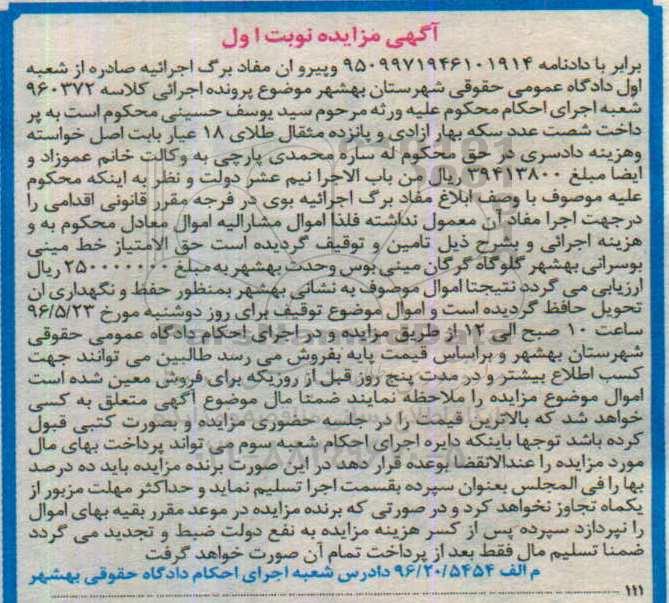 آگهی مزایده نوبت اول
برابر با دادنامه ۹۵۰۹۹۷۱۹۴۶۱۰۱۹۱۴ وپیرو ان مفاد برگ اجرائیه صادره از شعبه
اول دادگاه عمومی حقوقی شهرستان بهشهر موضوع پرونده اجرائی کلاسه ۹۶۰۳۷۲
شعبه اجرای احکام محکوم علیه ورثه مرحوم سید یوسف حسینی محکوم است به پر
داخت شصت عدد سکه بهار ازادی و پانزده مثقال طلای ۱۸ عیار بابت اصل خواسته
وهزینه دادسری در حق محکوم له ساره محمدی پارچی به وکالت خانم عموزاد و
ایضا مبلغ ۳۹۴۱۳۸۰۰ ریال من باب الاجرا نیم عشر دولت و نظر به اینکه محکوم
علیه موصوف با وصف ابلاغ مفاد برگ اجرائیه بوی در فرجه مقرر قانونی اقدامی را
درجهت اجرا مفاد آن معمول نداشته فلذا اموال مشارالیه اموال معادل محکوم به و
هزینه اجرائی و بشرح ذیل تامین و توقیف گردیده است حق الامتیاز خط مینی
بوسرانی بهشهر گلوگاه گرگان مینی بوس وحدت بهشهر به مبلغ ۲۵۰۰۰۰۰۰۰ ریال
ارزیابی می گردد نتیجتا اموال موصوف به نشانی بهشهر بمنظور حفظ و نگهداری ان
تحویل حافظ گردیده است و اموال موضوع توقیف برای روز دوشنبه مورخ ۹۶/۵/۲۳
ساعت ۱۰ صبح الی ۱۲ از طریق مزایده و در اجرای احکام دادگاه عمومی حقوقی
شهرستان بهشهر و براساس قیمت پایه بفروش می رسد طالبین می توانند جهت
کسب اطلاع بیشتر و در مدت پنج روز قبل از روزیکه برای فروش معین شده است
اموال موضوع مزایده را ملاحظه نمایند ضمنا مال موضوع آگهی متعلق به کسی
خواهد شد که بالاترین قیمت را در جلسه حضوری مزایده و بصورت کتبی قبول
کرده باشد توجها باینکه دایره اجرای احکام شعبه سوم می تواند پرداخت بهای مال
مورد مزایده را عندالاتقضا بوعده قرار دهد در این صورت برنده مزایده باید ده درصد
بها را فی المجلس بعنوان سپرده بقسمت اجرا تسلیم نماید و حداکثر مهلت مزبور از
یکماه تجاوز نخواهد کرد و در صورتی که برنده مزایده در موعد مقرر بقیه بهای اموال
را نپردازد سپرده پس از کسر هزینه مزایده به نفع دولت ضبط و تجدید می گردد
ضمنا تسلیم مال فقط بعد از پرداخت تمام آن صورت خواهد گرفت
م الف ۹۶/۲۰/۵۴۵۴ دادرس شعبه اجرای احکام دادگاه حقوقی بهشهر
۱۱۱